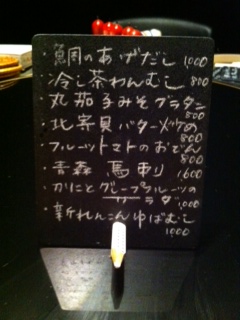 ・鯛のあげだし 1000
・冷し茶わんむし 800
・丸茄子みそグラタン 800
・北寄貝バター焼 800
・フルーツトマトのおでん 800
・青森 馬刺 1,600
・かにとグレープフルーツの
サラダ 1,000
・新れんこんゆばむし
1000